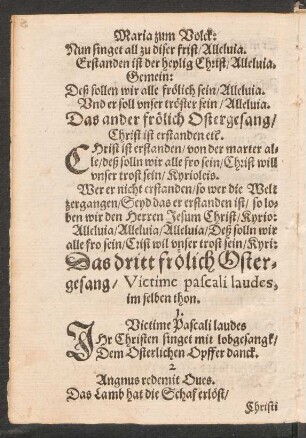 Maria zum Volck:
Nun singet all zu diser frist/ Alleluia.
Erstanden ist der heylig Christ/ Alleluia.
Gemein:
Deß sollen wir alle frölich sein/ Alleluia.
Vnd er soll vnser tröster sein/ Alleluia.
Das ander frölich Ostergesang/
Christ ist erstanden etc.
CHrist ist erstanden/ von der marter al-
le/ deß solln wir alle fro sein/ Christ will
vnser trost sein/ Kyrioleis.
Wer er nicht erstanden/ so wer die Welt
zergangen/ Seyd das er erstanden ist/ so lo-
ben wir den Herren Jesum Christ/ Kyrio:
Alleluia/ Alleluia/ Alleluia/ Deß solln wir
alle fro sein/ Crist wil vnser trost sein/ Kyri:
Das dritt frölich Oster-
gesang/ Victime pascali laudes,
im selben thon.
1.
Victime Pascali laudes
IHr Christen singet mit lobgesangk/
Dem Osterlichen Opffer danck.
2
Angnus redemit Oues.
Das Lamb hat die Schaf erlöst/
Christi